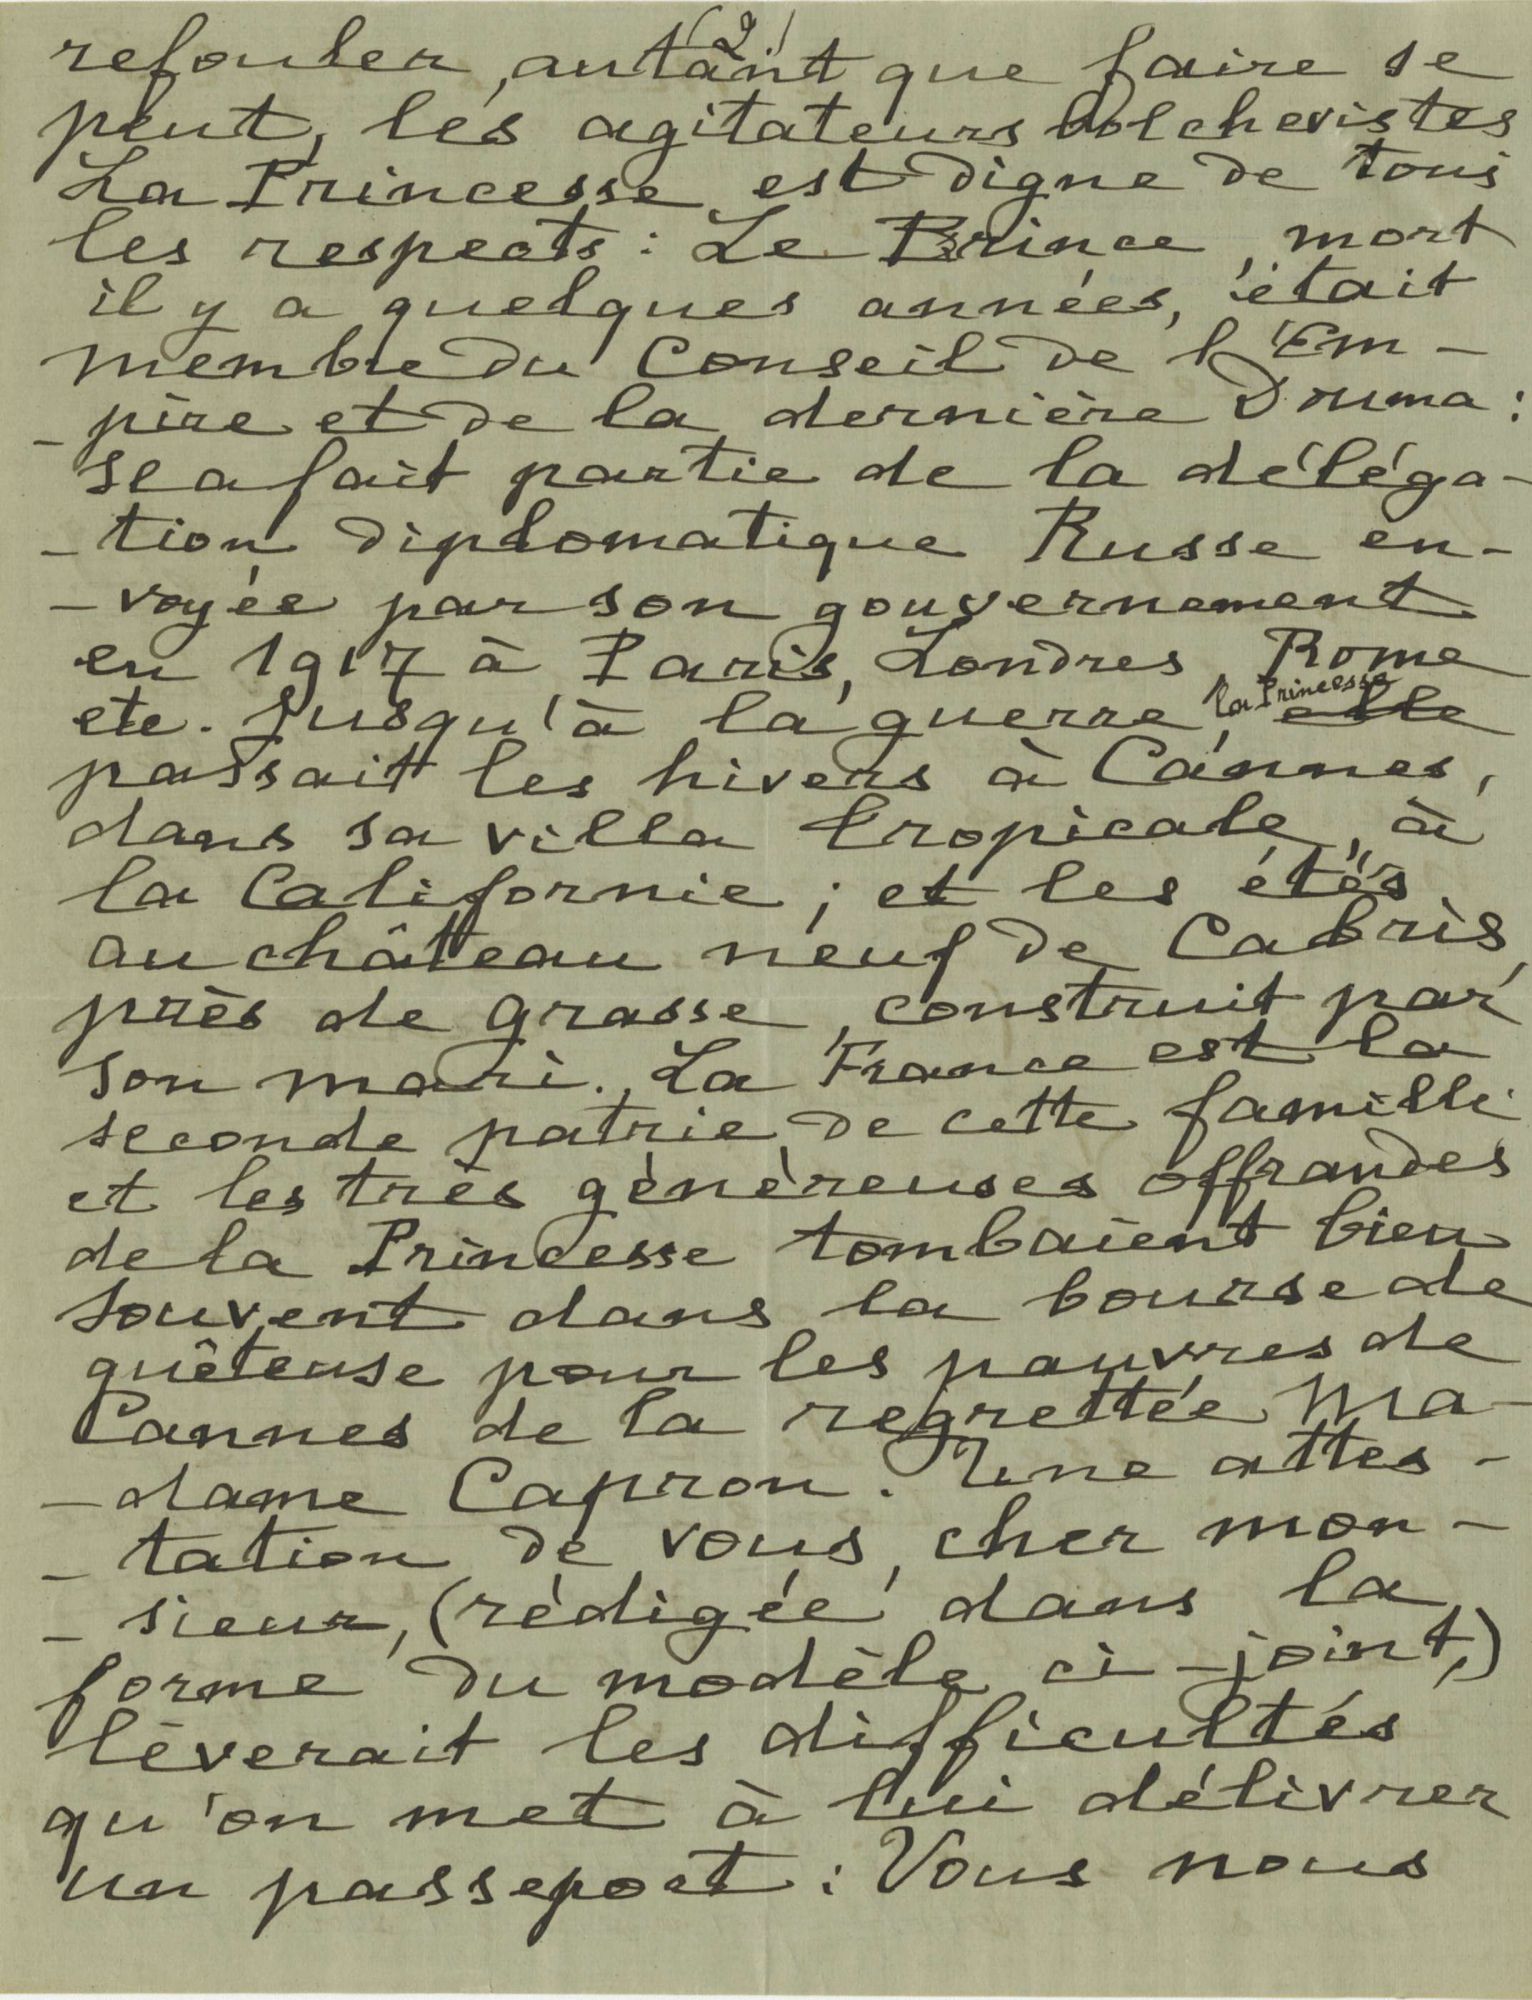 (2)
refouler, autant que faire se
peut, les agitateurs bolchevistes
La Princesse est digne de tous
les respects : Le Prince, mort
il y a quelques années, était
membre du Conseil de l'Em-
-pire et de la dernière Douma :
Il a fait partie de la déléga-
-tion diplomatique Russe en-
-voyée par son gouvernement
en 1917 à Paris, Londres, Rome
etc. Jusqu'à la guerre, la Princesse elle
passait les hivers à Cannes,
dans sa villa tropicale, à
la Californie ; et les étés
au château neuf de Cabris,
près de Grasse, construit par
son mari. La France est la
seconde patrie de cette famille
et les très génèreuses offrandes
de la Princesse tombaient bien
souvent dans la bourse de
quêteuse pour les pauvres de
Cannes de la regrettée Ma-
-dame Capron. Une attes-
-tation de vous, cher mon-
-sieur, (rédigée dans la
forme du modèle ci-joint,)
lèverait les difficultés
qu'on met à lui délivrer
un passeport : Vous nous